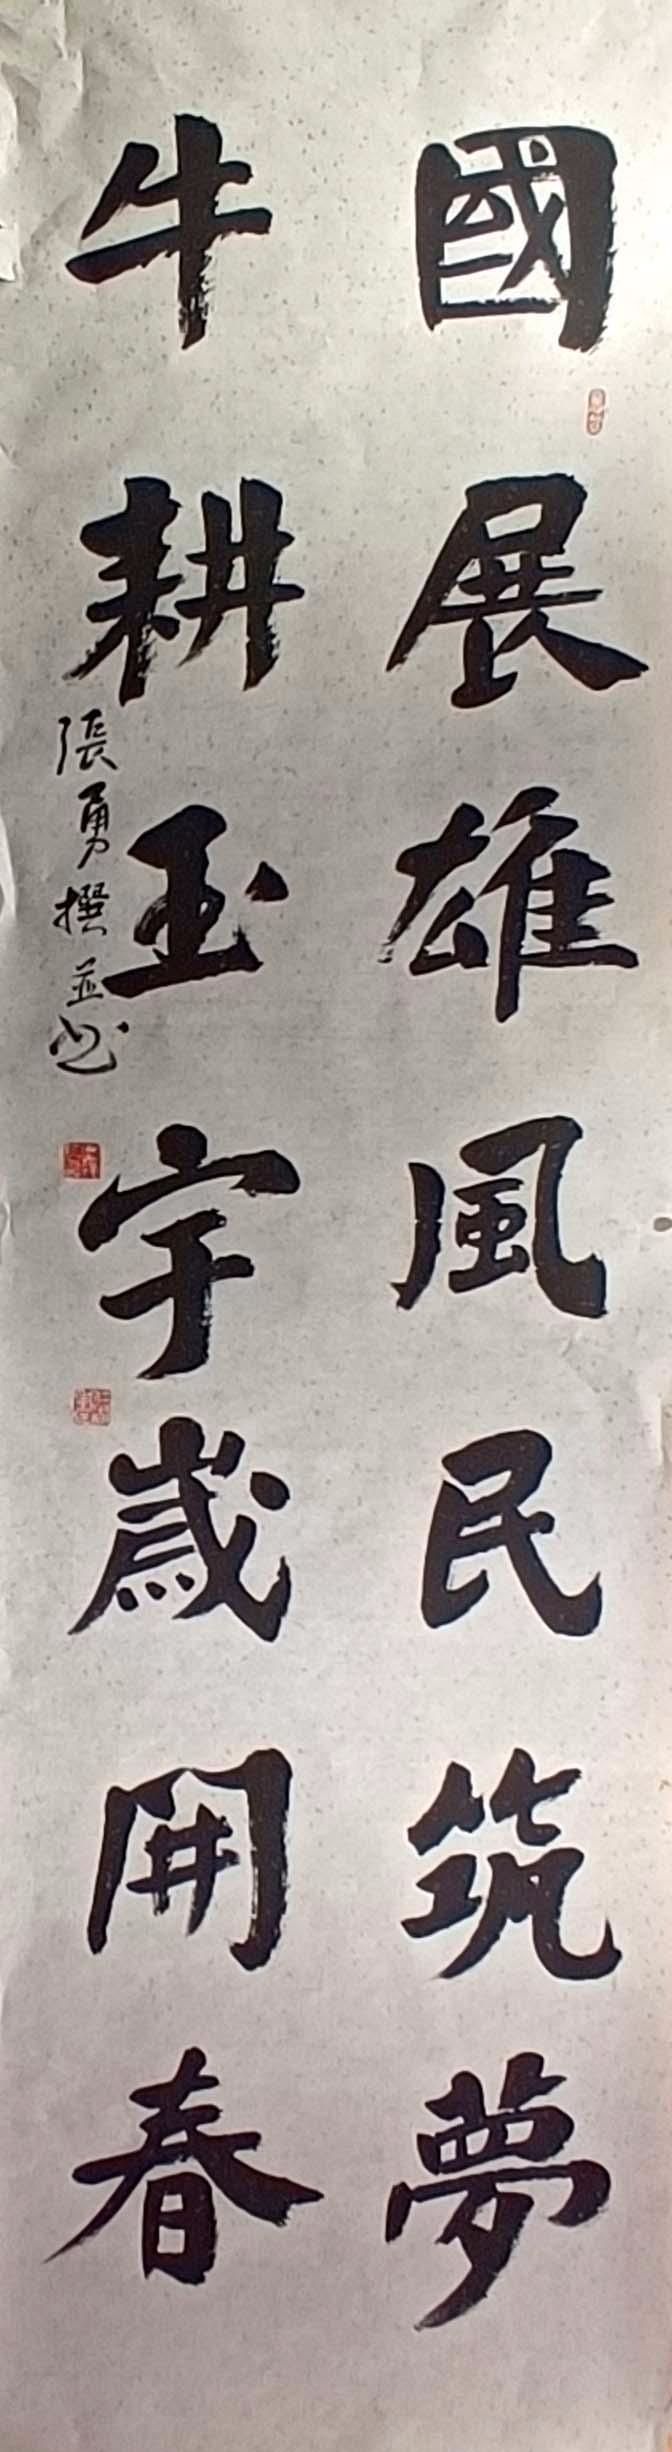 國展雄風民筑夢
牛耕玉宇歲開春
張勇撰並书